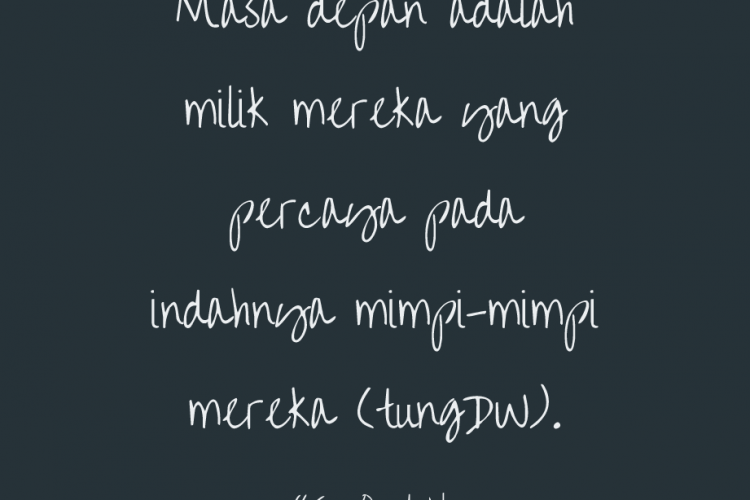 Masa depan adalah
milik mereka yang
percaya pada
indahnya mimpi-mimpi
mereka (tungDW).